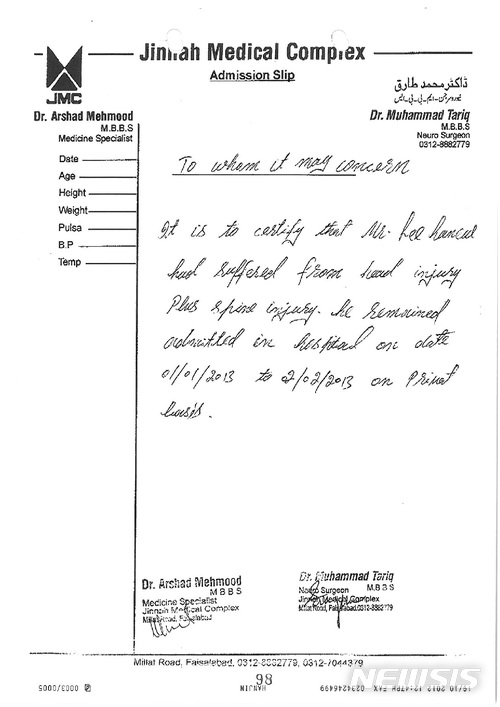 Jinnah Medical Complex
Admission Slip
JMC
Dr. Arshad Mehmood
M.B.B.S
Medicine Specialist
ڈاکٹر محمد طارق
نیوروسرجن-ایم-بی-بی-ایس
Dr. Muhammad Tariq
M.B.B.S
Neuro Surgeon
0312-8882779
Date
Age
Height
Weight
Pulsa
B.P
Temp
To whom it may concern
It is to certify that Mr. Lee
had suffered from head injury
Plus spine injury. he remained
admitted in hospital on date
01/01/2013 to 02/02/2013 on Privat
basis.
Dr. Arshad Mehmood
M B B S
Medicine Specialist
Jinnah Medical Complex
Millat Road, Faisalabad
Dr. Muhammad Tariq
M.B B S
Neuro Surgeon
Jinnah Medical Complex
Millat Road, Faisalabad.0312-8882779
Millat Road, Faisalabad, 0312-8882779, 0312-7044379
98
HANJIN
0003/0005
NEWSIS